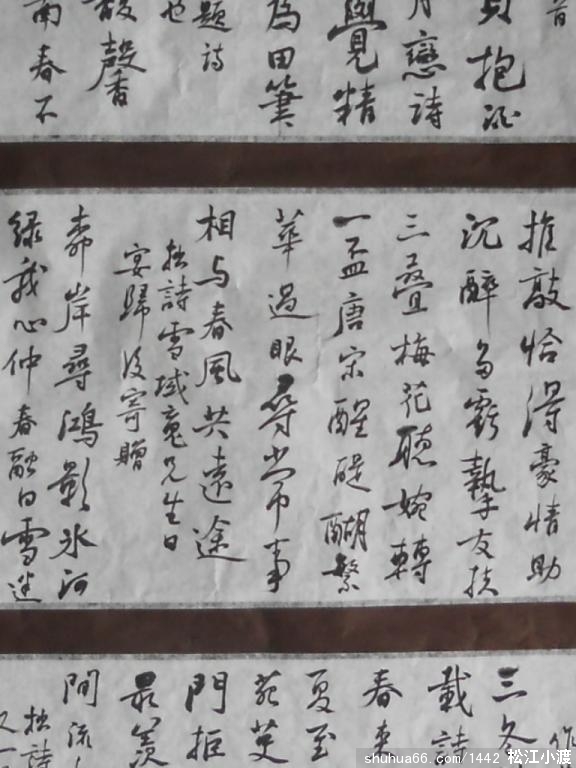 首
抱冰
月戀詩
覺精
為田筆
題詩
也
馨
南春不
推敲恰得豪情助
沉醉多虧摯友扶
三疊梅花聽婉轉
一盃唐宋醒醍醐繁
華過眼尋常事
相与春風共遠途
拙詩雪域竟兄生日
宴歸後寄贈
岸尋鴻影冰河
綠我心仲春融白雪迷
作
三文
載詩
春來
夏至
苑芰
門拒
最羨
間流
拙詩
shuhua66.com/1442 松江小渡